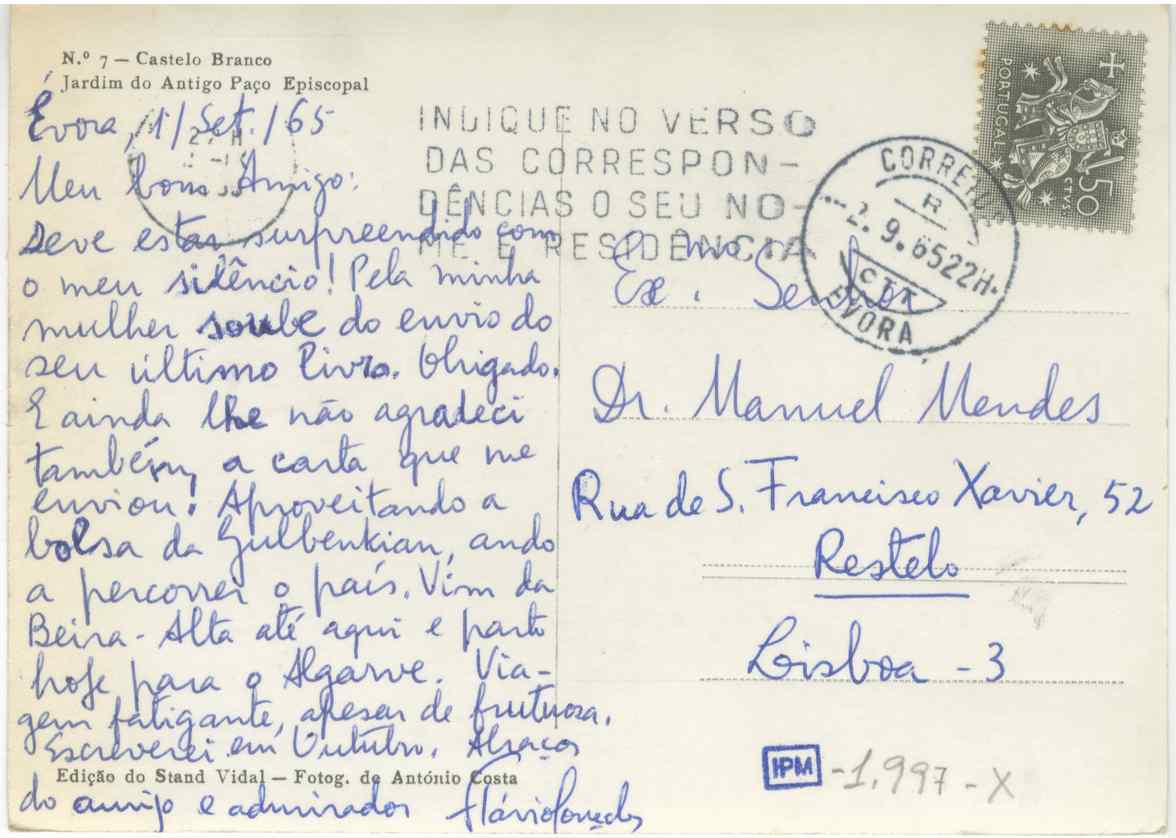 N.º 7 — Castelo Branco
Jardim do Antigo Paço Episcopal
Évora, 1/Set./65
Meu bom Amigo:
Deve estar surpreendido com
o meu silêncio! Pela minha
mulher soube do envio do
seu último livro. Obrigado.
E ainda lhe não agradeci
também a carta que me
enviou! Aproveitando a
bolsa da Gulbenkian, ando
a percorrer o país. Vim da
Beira-Alta até aqui e parto
hoje para o Algarve. Via-
gem fatigante, apesar de frutuosa.
Escreverei em Outubro. Abraços
Edição do Stand Vidal — Fotog. de António Costa
do amigo e admirador
INDIQUE NO VERSO
DAS CORRESPON-
DÊNCIAS O SEU NO-
ME E RESIDÊNCIA
CORREIOS
R
2.9.6522H.
CTT
EVORA
PORTUGAL
CTVS
50
Ex.mo Senhor
Dr. Manuel Mendes
Rua de S. Francisco Xavier, 52
Restelo
Lisboa - 3
IPM -1.997-X